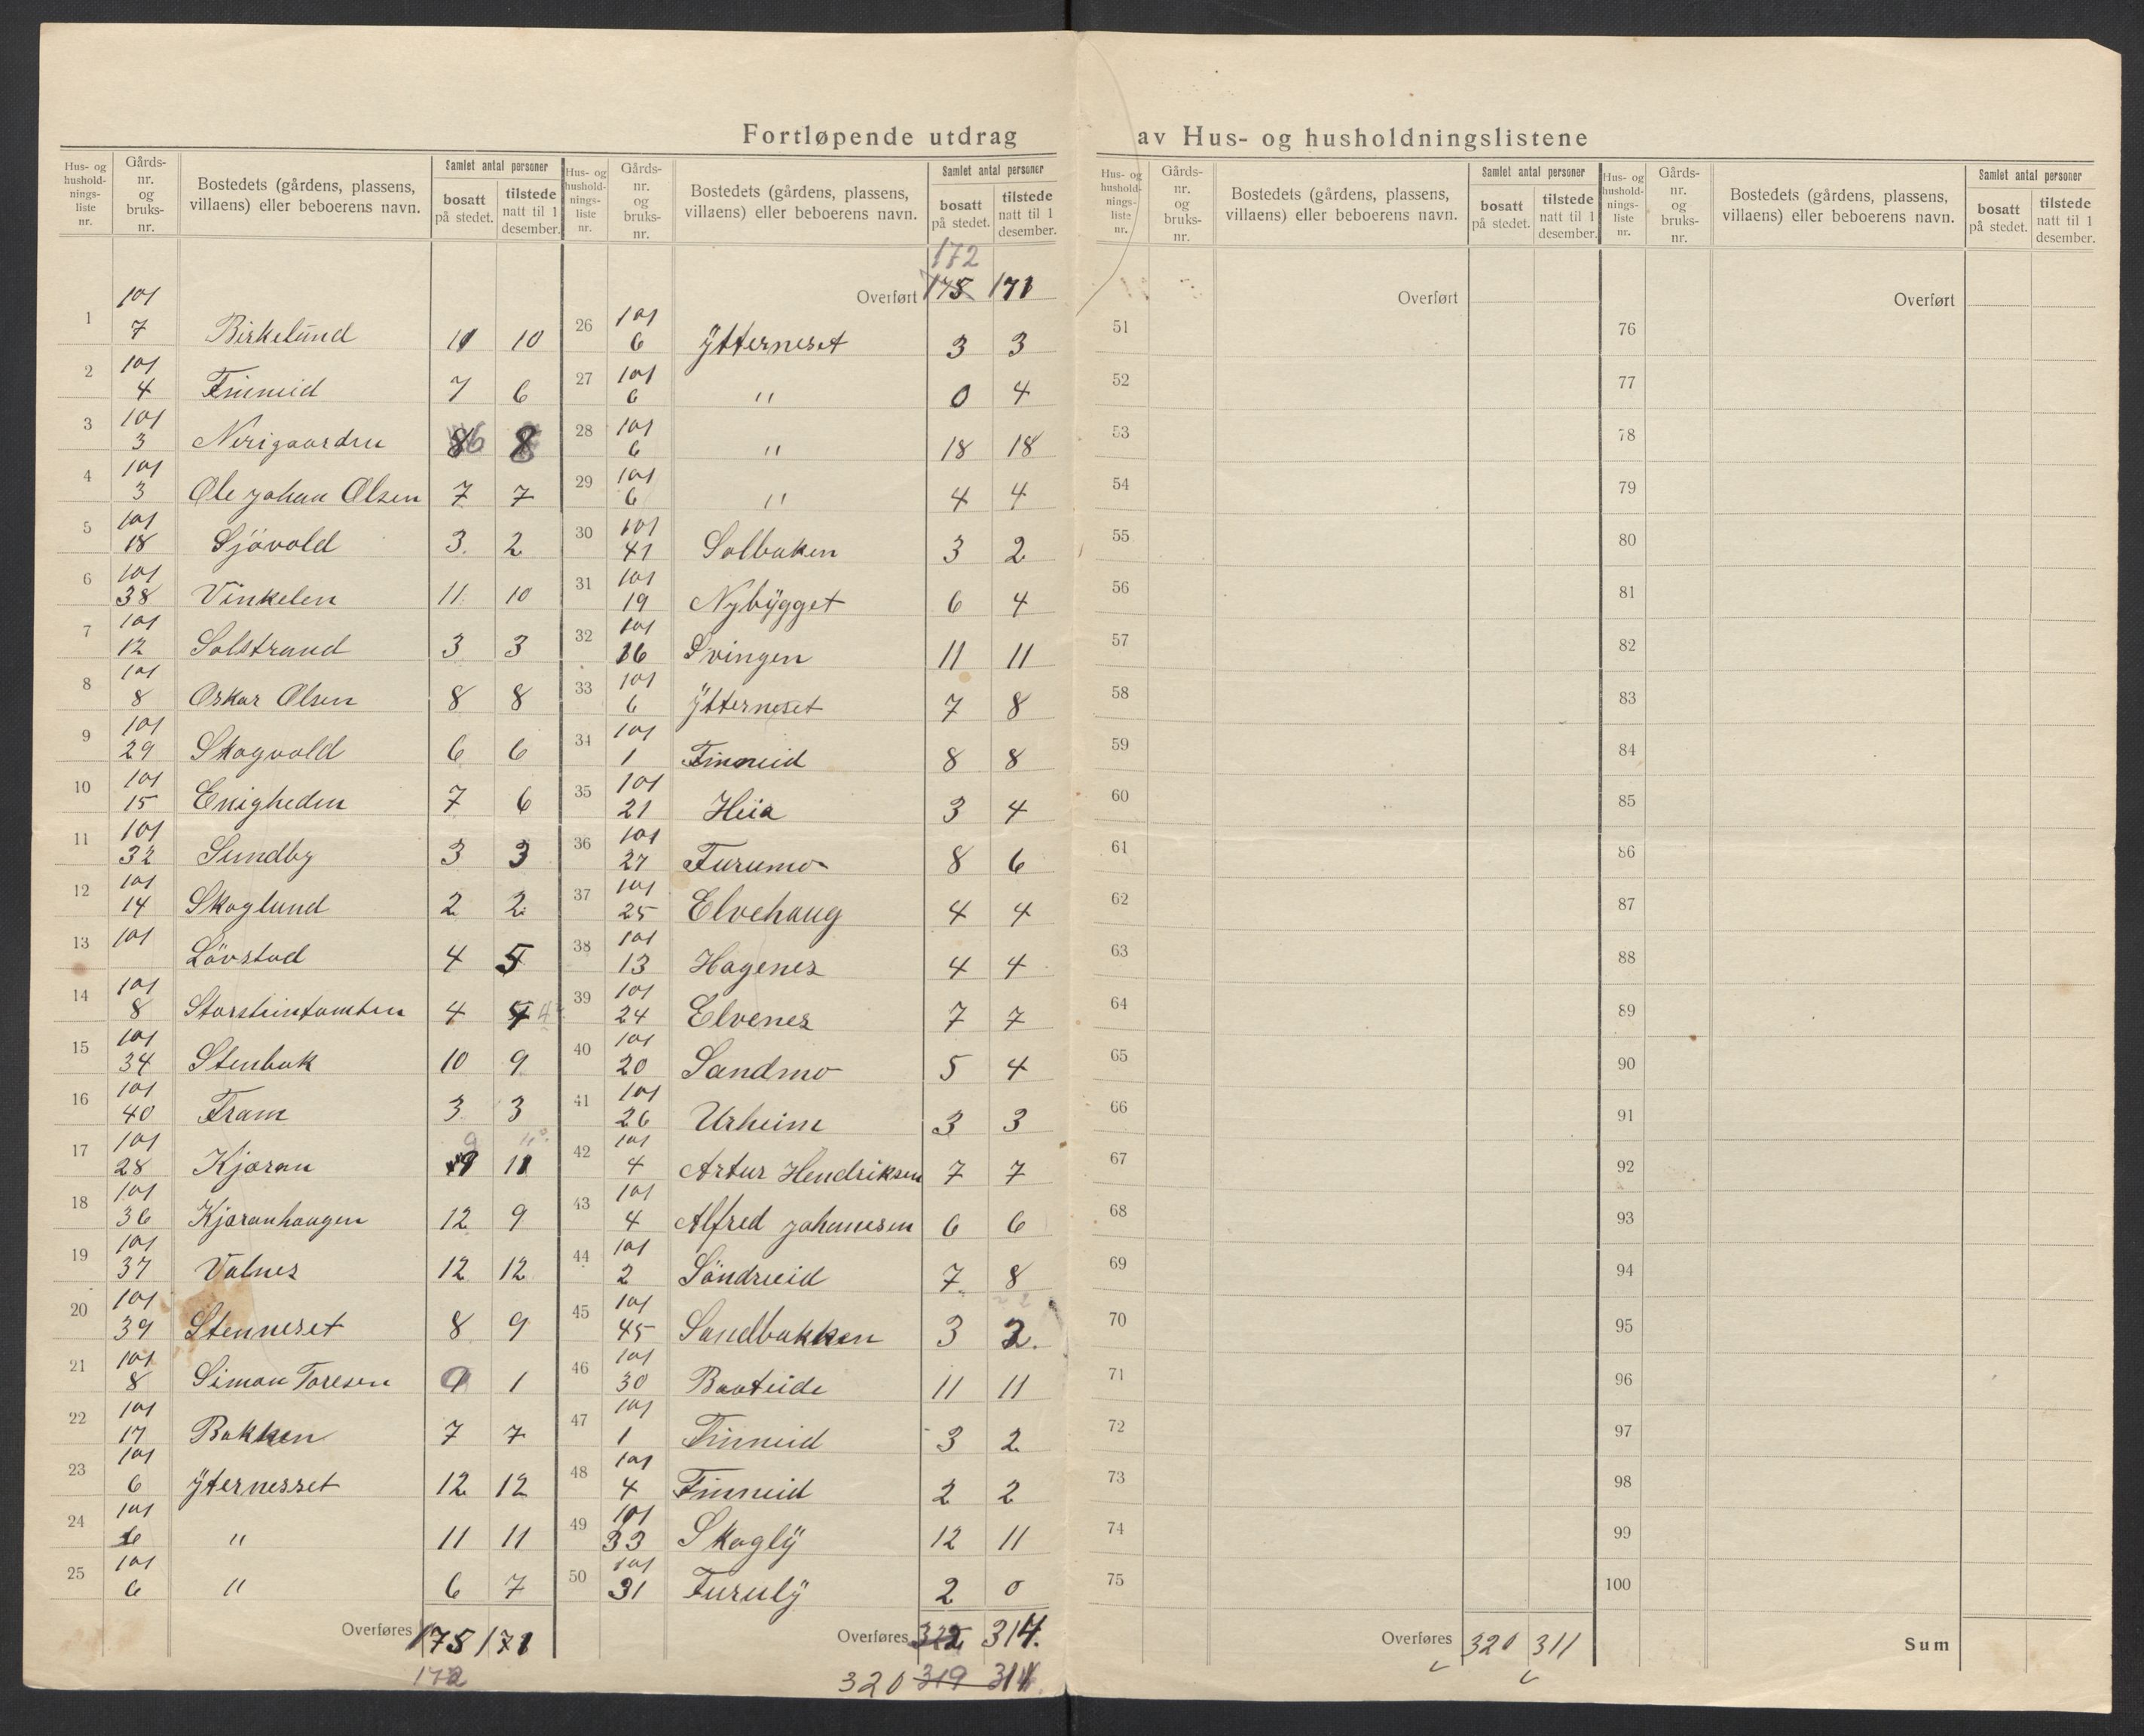 Fortløpende utdrag av Hus- og husholdningslistene
Hus- og hushold-nings-liste nr. Gårds-nr. og bruks-nr. Bostedets (gårdens, plassens, villaens) eller beboerens navn. Samlet antal personer bosatt på stedet. tilstede natt til 1 desember.
1 101 7 Birkelund 11 10
2 101 4 Finneid 7 6
3 101 3 Nerigaarden 8 6 8
4 101 3 Ole Johan Olsen 7 7
5 101 18 Sjövold 3. 2
6 101 38 Vinkelen 11. 10
7 101 12 Solstrand 3 3
8 101 8 Oskar Olsen 8 8
9 101 29 Skogvold 6 6
10 101 15 Enigheden 7 6
11 101 32 Sundby 3 3
12 101 14 Skoglund 2 2
13 101 Lövstad 4 5
14 101 8 Storsteintomten 4 4
15 101 34 Stenbak 10 9
16 101 40 Fram 3 3
17 101 28 Kjæran 9 11
18 101 36 Kjæranhaugen 12 9
19 101 37 Valnes 12 12
20 101 39 Stenneset 8 9
21 101 8 Simon Toresen 1
22 101 17 Bakken 7 7
23 101 6 Ÿternesset 12 12
24 101 6 " 11 11
25 101 6 " 6 7
Overføres 175 171
172
Hus- og hushold-nings-liste nr. Gårds-nr. og bruks-nr. Bostedets (gårdens, plassens, villaens) eller beboerens navn. Samlet antal personer bosatt på stedet. tilstede natt til 1 desember.
172
Overført 175 171
26 101 6 Ÿtterneset 3 3
27 101 6 " 0 4
28 101 6 " 18 18
29 101 6 " 4 4
30 101 41 Solbaken 3 2
31 101 19 Nybÿgget 6 4
32 101 16 Svingen 11 11
33 101 6 Ÿtterneset 7 8
34 101 1 Finneid 8 8
35 101 21 Heia 3 4
36 101 27 Furumo 8 6
37 101 25 Elvehaug 4 4
38 101 13 Hagenes 4 4
39 101 24 Elvenes 7 7
40 101 20 Sandmo 5 4
41 101 26 Urheim 3 3
42 101 4 Artur Hendriksen 7 7
43 101 4 Alfred Johannesen 6 6
44 101 2 Söndreeid 7. 8
45 101 45 Sandbakken 3 2.
46 101 30 Baateide 11 11
47 101 1 Finneid 3 2
48 101 4 Finneid 2 2
49 101 33 Skoglÿ 12 11
50 101 31 Furulÿ 2 0
Overføres 322 314.
320 319 311
Hus- og hushold-nings-liste nr. Gårds-nr. og bruks-nr. Bostedets (gårdens, plassens, villaens) eller beboerens navn. Samlet antal personer bosatt på stedet. tilstede natt til 1 desember.
Overført
51
52
53
54
55
56
57
58
59
60
61
62
63
64
65
66
67
68
69
70
71
72
73
74
75
Overføres 320 311
Hus- og hushold-nings-liste nr. Gårds-nr. og bruks-nr. Bostedets (gårdens, plassens, villaens) eller beboerens navn. Samlet antal personer bosatt på stedet. tilstede natt til 1 desember.
Overført
76
77
78
79
80
81
82
83
84
85
86
87
88
89
90
91
92
93
94
95
96
97
98
99
100
Sum